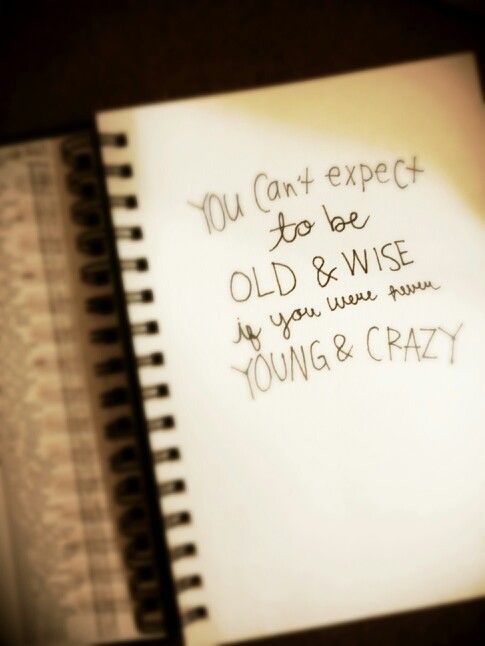 YOU Can't expect
to be
OLD & WISE
if you were never
YOUNG & CRAZY